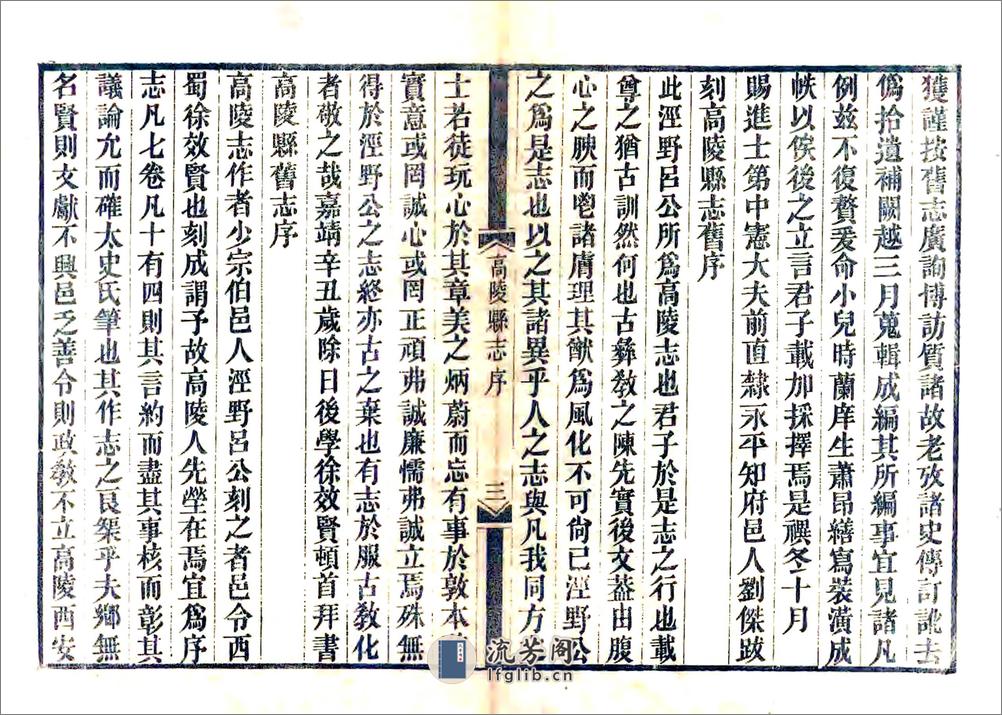 獲謹按舊志廣詢博訪質諸故老攷諸史傳訂訛去
僞拾遺補闕越三月蒐輯成編其所編事宜見諸凡
例茲不復贅爰命小兒時蘭庠生蕭昂繕寫裝潢成
帙以俟後之立言君子載加採擇焉是禩冬十月
賜進士第中憲大夫前直隸永平知府邑人劉傑跋
刻高陵縣志舊序
此涇野呂公所爲高陵志也君子於是志之行也載
尊之猶古訓然何也古彝敎之陳先實後文葢由腹
心之腴而鬯諸膚理其猷爲風化不可尙已涇野公
之爲是志也以之其諸異乎人之志與凡我同方之
高陵縣志序
三
士若徒玩心於其章美之炳蔚而忘有事於敦本
實意或罔誠心或罔正頑弗誠廉懦弗誠立焉殊無
得於涇野公之志終亦古之棄也有志於服古敎化
者敬之哉嘉靖辛丑歲除日後學徐效賢頓首拜書
高陵縣舊志序
高陵志作者少宗伯邑人涇野呂公刻之者邑令西
蜀徐效賢也刻成謂予故高陵人先塋在焉宜爲序
志凡七卷凡十有四則其言約而盡其事核而彰其
議論允而確太史氏筆也其作志之良榘乎夫鄉無
名賢則文獻不興邑乏善令則政敎不立高陵西安
流芳阁
lfglib.cn